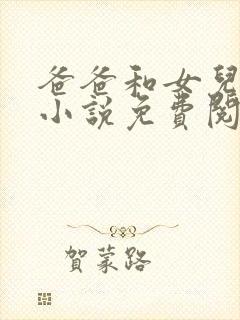 爸爸和女兒
小說免費閱
賀蒙路